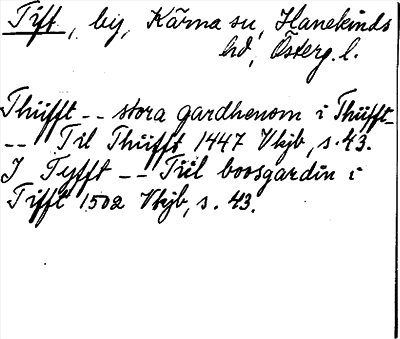 Tift, by, Kärna sn, Hanekinds
hd, Österg. l.
Thüfft -- stora gardhenom i Thüfft
-- Til Thüfft 1447 Vkjb, s. 43.
I Tyfft -- Tiil boosgardin i
Tifft 1502 Vkjb, s. 43.